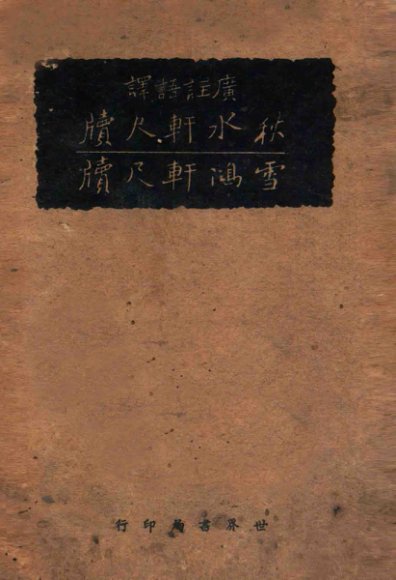 廣註語譯
秋水軒尺牘
雪鴻軒尺牘
世界書局印行